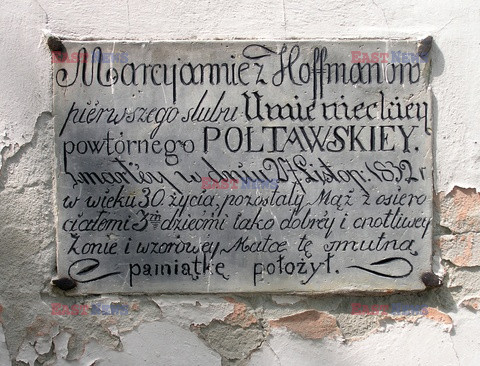 Marcyjannie z Hoffmanów
pierwszego slubu Umienieckiey
powtórnego POŁTAWSKIEY.
Zmarłey w dniu 27 Listop: 1832 r
w wieku 30. życia, pozostały Mąż z osiero
ciałemi 3m dziećmi iako dobréy i cnotliwey
Żonie i wzorowey Matce tę smutną
pamiątkę położył.